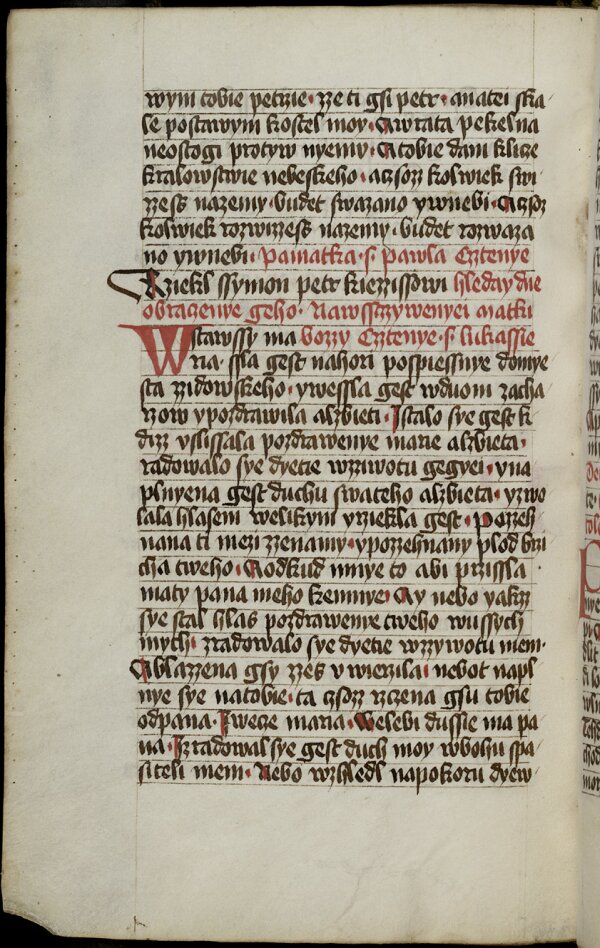 wym tobie petrzie · zze ti gsi petr · anatei ska
le postawym kostel moy · Awrata pekelna
neostogi protyw nyemu · Atobie dam klize
kralowstwie nebeskeho · aczsozz kolwiek swi
zzess nazemy · budet swazano ywnebi · Aczsoz
kolwiek rozwizzess nazemy · budet rozwaza
no ywnebi · Pamatka · s · pawla Cztenye
Rziekl ssymon petr kiezzissowi hleday dne
obraczenye geho · Nawsstzywenyei matki
Wstawssy ma bozzy Cztenye · s · lukassie
ria · ssla gest nahori pospiessnye domye
sta zzidowskeho · ywessla gest wduom zacha
rzow ypozdrawila alzbieti · Istalo sye gest k
dizz uslissala pozdrawenye marie alzbieta ·
radowalo sye dyetie wzziwotu gegyei · yna
plnyena gest duchu swateho alzbieta · yzwo
lala hlasem welikym yrziekla gest · Pozzeh
nana ti mezi zzenamy · ypozzehnany plod brzi
cha tweho · Aodkud mnye to abi przissla
maty pana meho kemnye · Ay nebo yakzz
sye stal hlas pozdrawenye tweho wussych
mych · zradowalo sye dyetie wzzywotu mem ·
Ablazzena gsy zzes uwierzila · nebot napl
nye sye natobie · ta czsozz rzczena gsu tobie
odpana · Iwecze maria · Welebi dussie ma pa
na · Izradowal sye gest duch moy wbohu spa
siteli mem · Nebo wzhledl napokoru dyew